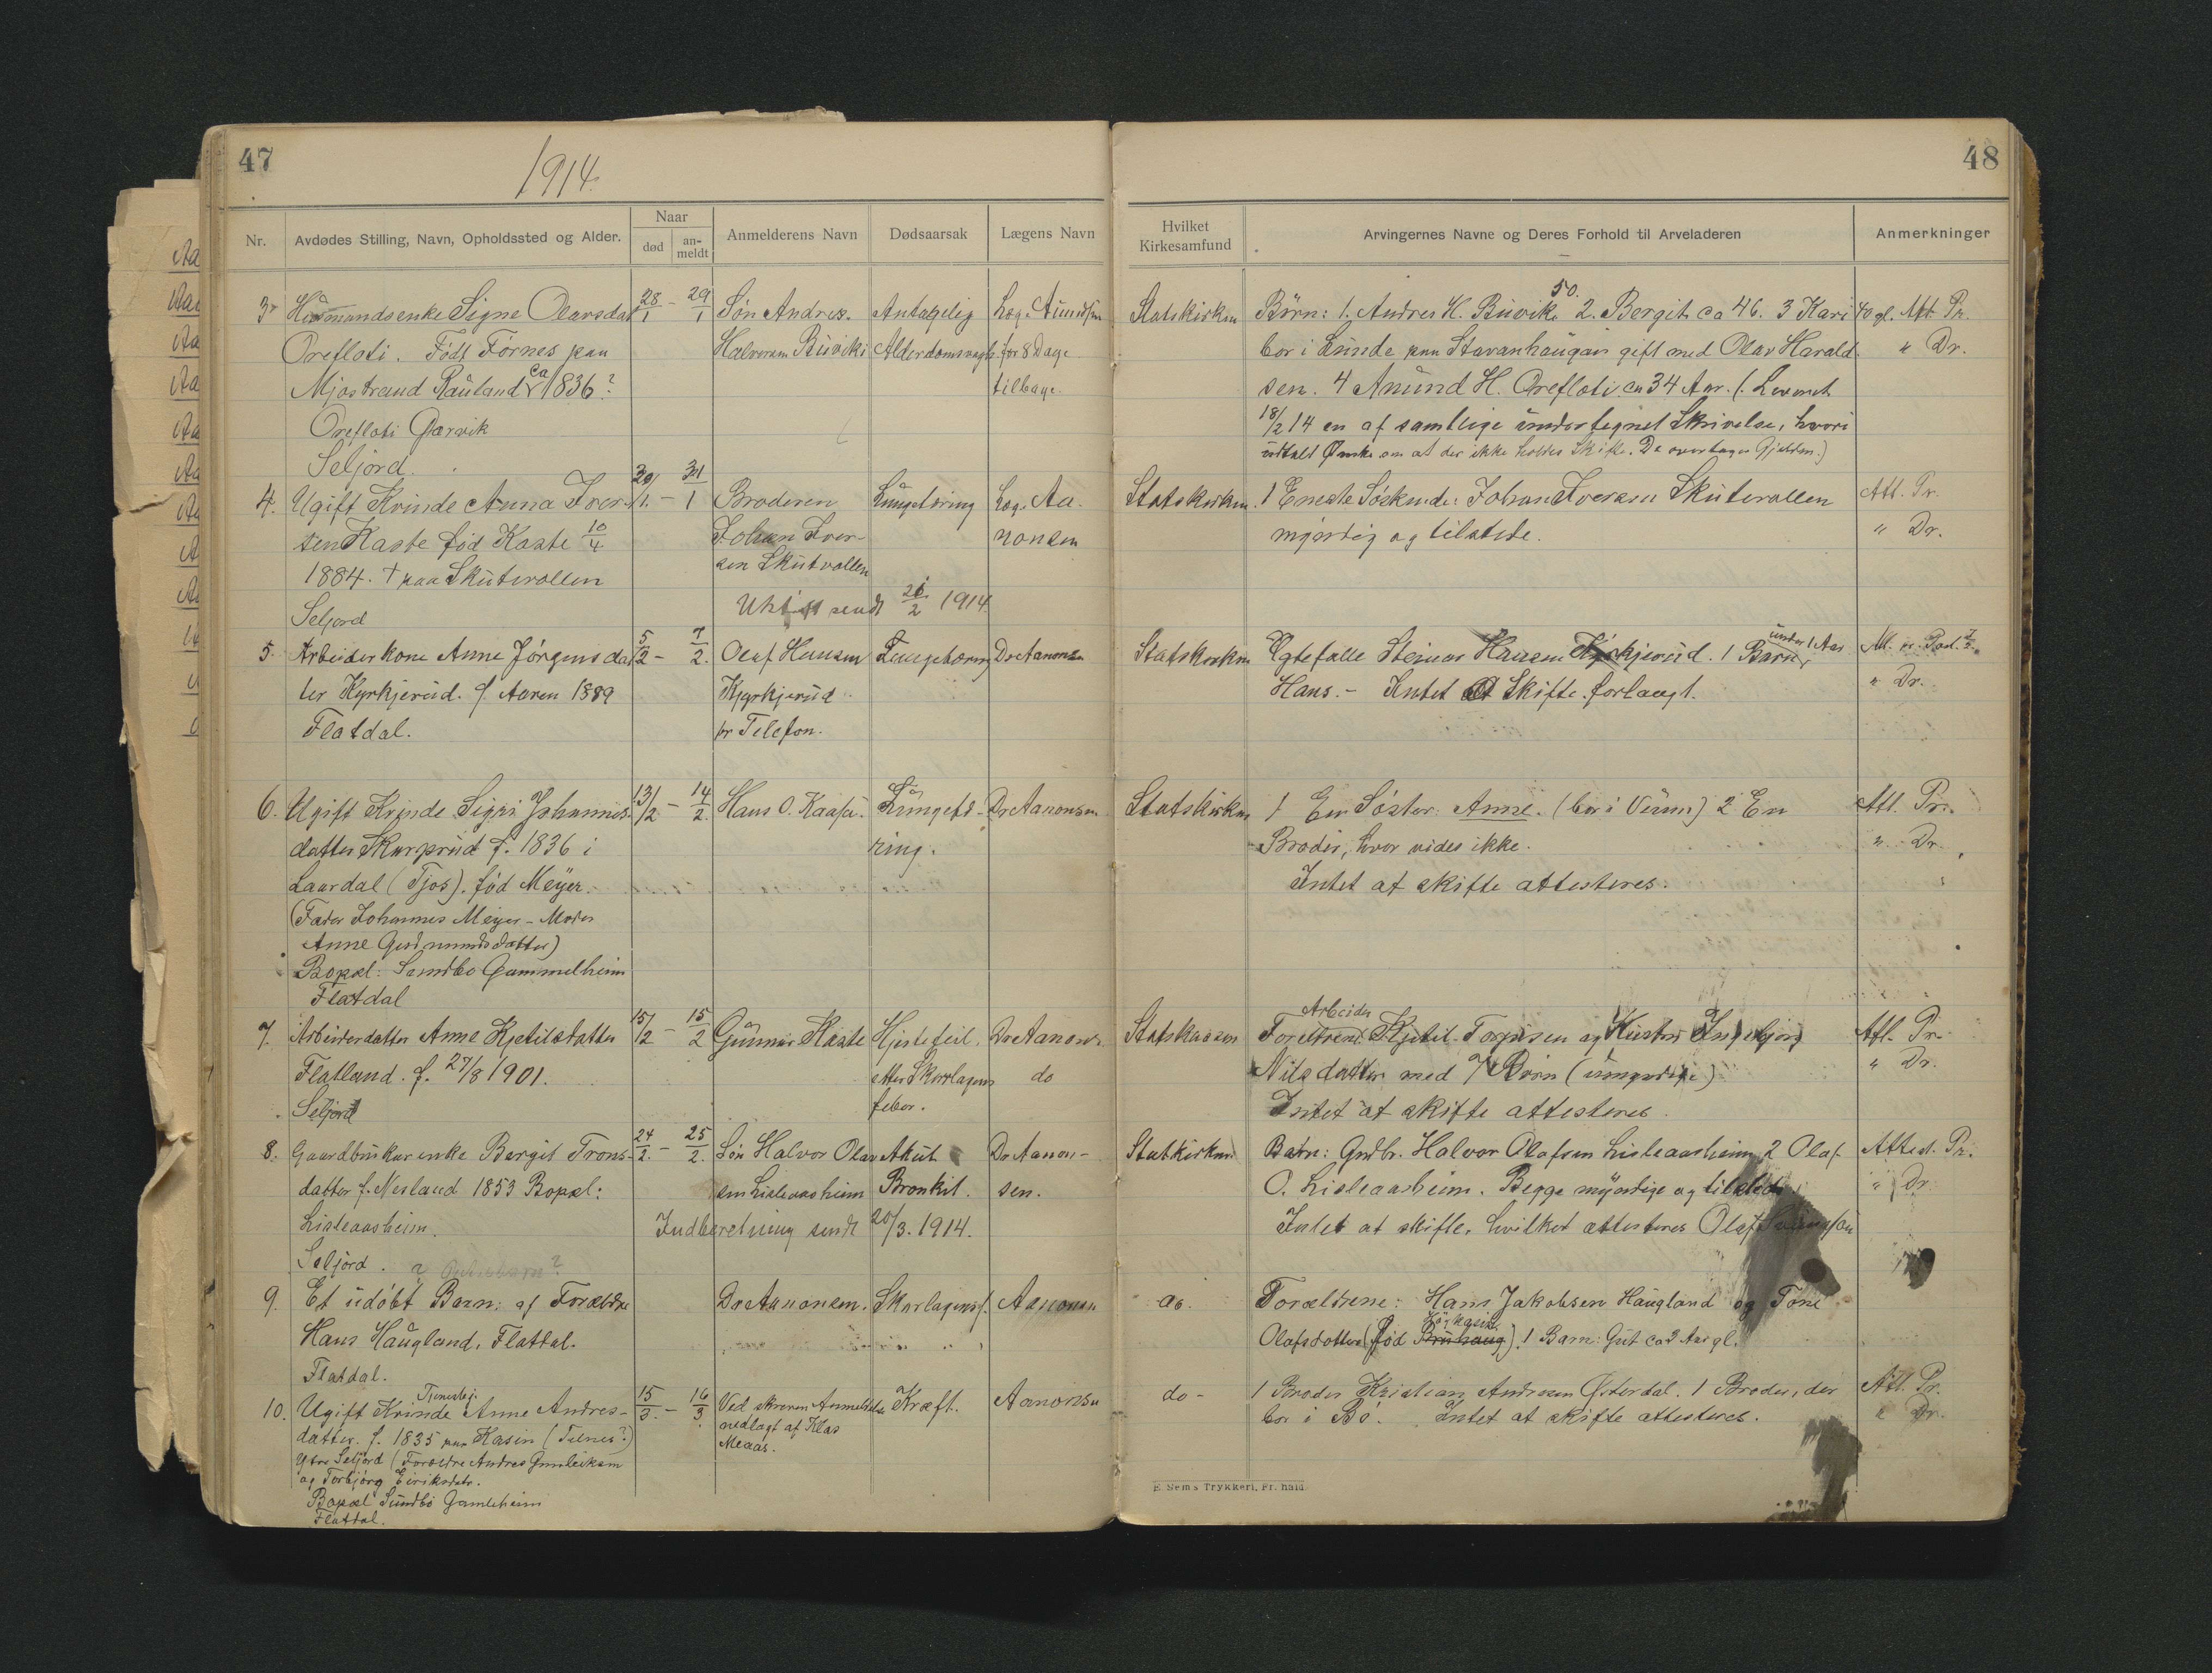 47
1914.
Nr.
Avdødes Stilling, Navn, Opholdssted og Alder.
Naar
død
an-
meldt
Anmelderens Navn
Dødsaarsak
Lægens Navn
3
Husmandsenke Signe Olavsdat
28/1 - 29/1
Søn Andres
Antagelig
Læge
Orefloti. Født Førnes paa
Halvorsen Buviki
for 8 Dage
Mjøsstrand Rauland ca 1836?
tilbage.
Orefloti
Seljord.
4.
Ugift Kvinde Anna Iver-
30/1 - 31/1
Broderen
Lungetæring
Læge Aa-
sen Kaste fød Kaste 10/4
Johan Iver-
nonsen
1884. † paa Skutevollen
sen Skutvollen
sendt 26/2 1914.
Seljord
5.
Arbeiderkone Anne Jørgensdat
5/2 - 7/2.
Olaf Hansen
Lungetæring
Dr Aanonsen
ter Kyrkjerud. f. Aaren 1889
Kyrkjerud
Flatdal.
pr Telefon.
6.
Ugift Kvinde Sigri Johannes-
13/2 - 14/2.
Hans O. Kaasa.
Lungetæ-
Dr Aanonsen
datter Skorprud f. 1836 i
ring.
Laardal (Tjos). fød Meyer.
(Fader Johannes Meyer - Moder
Anne Gudmundsdatter)
Bopæl: Sundbø Gammelheim
Flatdal
7.
Arbeiderdatter Anne Kjetilsdatter
15/2 - 15/2
Gunnar Kaste
Hjertefeil.
Dr Aanons.
Flatland. f. 27/8 1901.
etter Skarlagens
do
Seljord
feber.
8.
Gaardbrukarenke Bergit Trons-
24/2. - 25/2.
Søn Halvor Olav
Akut
Dr Aanon-
datter f. Nesland 1853 Bopæl:
sen Lisleaasheim
Bronkit.
sen.
Lisleaasheim.
Indberetning sendt 20/3. 1914.
Seljord.
9.
Et udøbt Barn: af Forældre
Dr Aanonsen.
Skarlagensf.
Aanonsen
Hans Haugland, Flatdal.
Flatdal.
10.
Tjenestepi.
Ugift Kvinde Anne Andres-
15/3. - 16/3.
Ved skreven Anmeldelse
Kræft.
Aanonsen
datter. f. 1835 paa Kasin
nedlagt af Klas
Ytre Seljord (Forældre Andres Gunleiksen
Meaas.
og Torbjørg Eiriksdatr.
Bopæl Sundbø Gamleheim
Flatdal.
48
Hvilket
Kirkesamfund
Arvingernes Navne og Deres Forhold til Arveladeren
Anmerkninger
50.
Statskirken
Børn: 1. Andres H. Buvik. 2. Bergit ca 46. 3 Kari 40 gl.
Att. Pr.
bor i Lunde paa Stavanhaugan gift med Olav Harald-
" Dr.
sen. 4 Anund H. Orefloti ca 34 Aar. (Leveret
18/2 14 en af samtlige undertegnet Skrivelse, hvori
udtalt Ønske om at der ikke holdes Skifte. De overtager Gjelden.)
Statskirken.
1 Eneste Søskende: Johan Iversen Skutevollen
Att. Pr.
myndig og tilstede.
" Dr.
Statskirken
Egtefælle Steinar Hansen Kyrkjerud. 1 Barn under 1 Aar
Hans. - Intet at Skifte forlangt.
" Dr.
Statskirken
1 En Søster: Anne. (bor i Vinum) 2 En
Att. Pr.
Broder, hvor vides ikke.
" Dr.
Intet at skifte attesteres.
Statskirken
Arbeider
Forældrene: Kjetil Torjusen og Hustru Ingebjørg
Att. Pr.
Nilsdatter med 7 Børn (umyndige)
" Dr.
Intet at skifte attesteres.
Statkirken
Børn: Grdbr. Halvor Olafsen Lisleaasheim 2 Olaf
Attest. Pr.
O. Lisleaasheim. Begge myndige og tilstede.
" Dr.
Intet at skifte. hvilket attesteres Olaf
do.
Forældrene: Hans Jakobsen Haugland og Tone
Olafsdotter (fød Bruhaug). 1 Barn: Gut ca 3 Aar gl.
do -
1 Broder Kristian Andresen Østerdal. 1 Broder, der
Att. Pr.
bor i Bø. Intet at skifte attesteres.
" Dr.
E. Sems Trykkeri, Fr. hald.